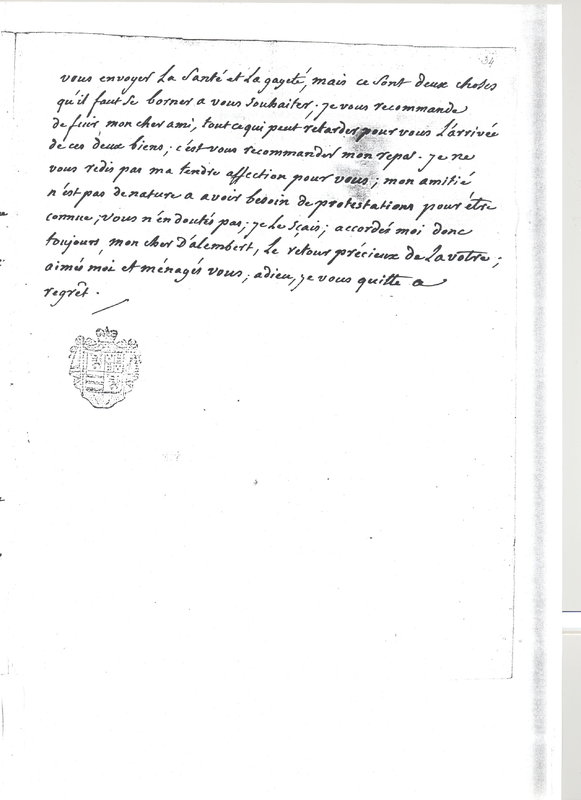 34
vous envoyer la santé et la gayeté, mais ce sont deux choses
qu'il faut se borner a vous souhaiter. je vous recommande
de fuir, mon cher ami, tout ce qui peut retarder pour vous l'arrivée
de ces deux biens; c'est vous recommander mon repos. je ne
vous redis pas ma tendre affection pour vous; mon amitié
n'est pas de nature a avoir besoin de protestations pour être
connue; vous n'en doutés pas; je le sçais; accordés moi donc
toujours, mon cher D'alembert, le retour précieux de la votre;
aimés moi et ménagés vous; adieu, je vous quitte a
regrêt.